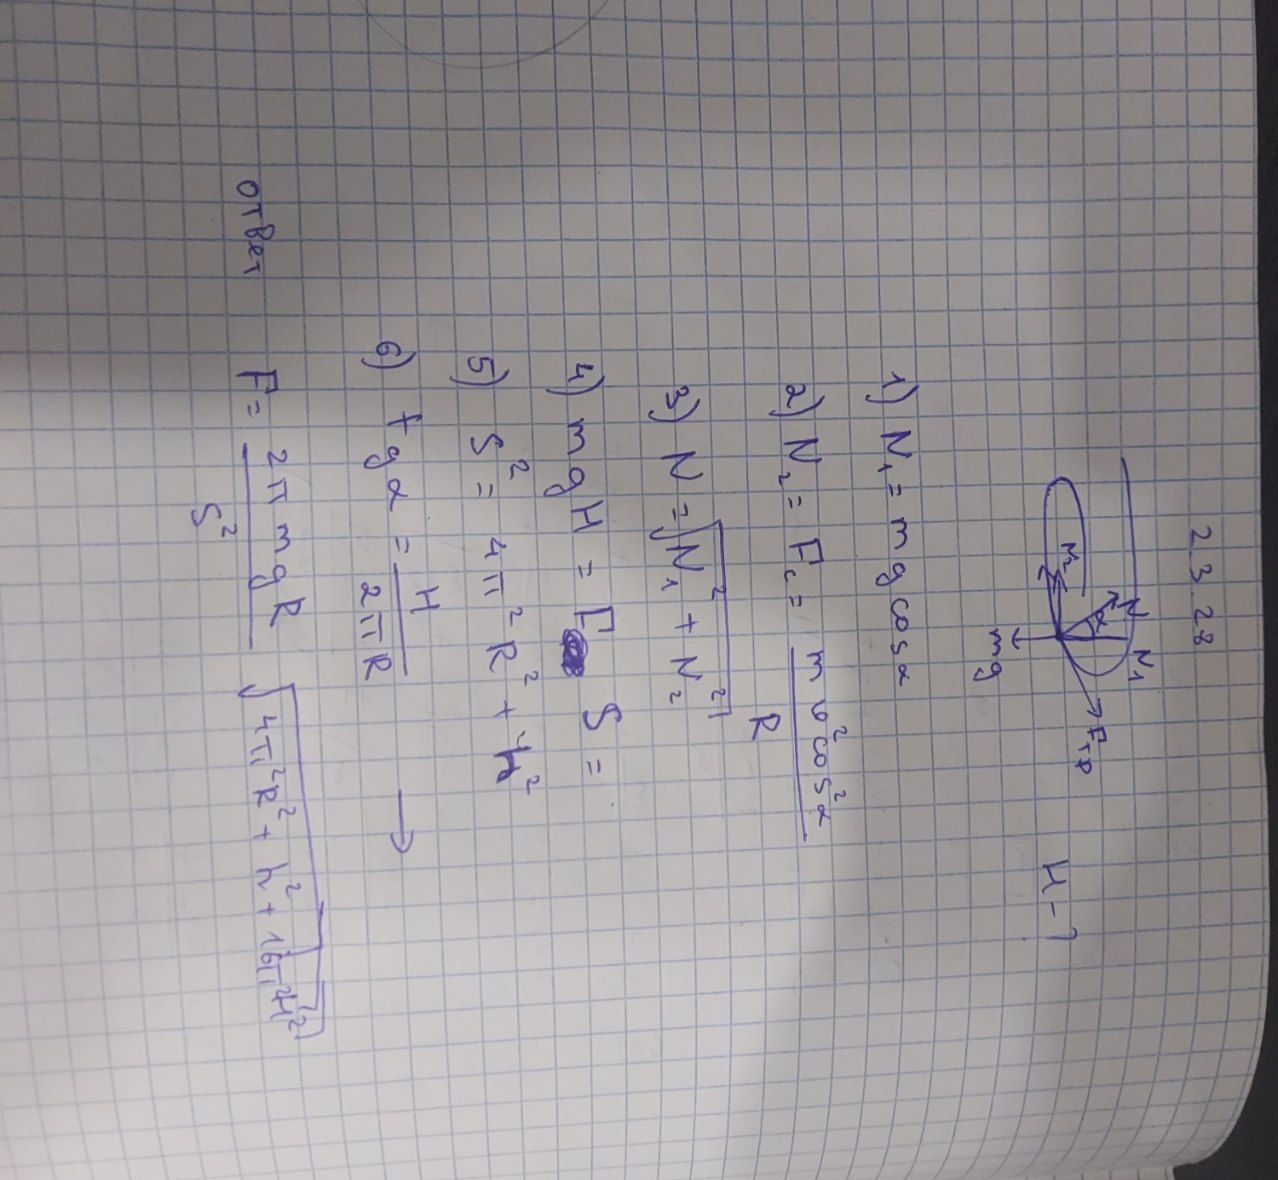 2.3.28
N N₁
α
N₂
Fтр
mg
H-?
1) N₁ = mg cosα
2) N₂ = Fc = mv²cos²α / R
3) N = √(N₁² + N₂²)
4) mgH = F S =
5) S² = 4π²R² + h²
6) tgα = H / 2πR →
ответ F = 2πmgR / S² √(4π²R² + h² + 16π²H²)